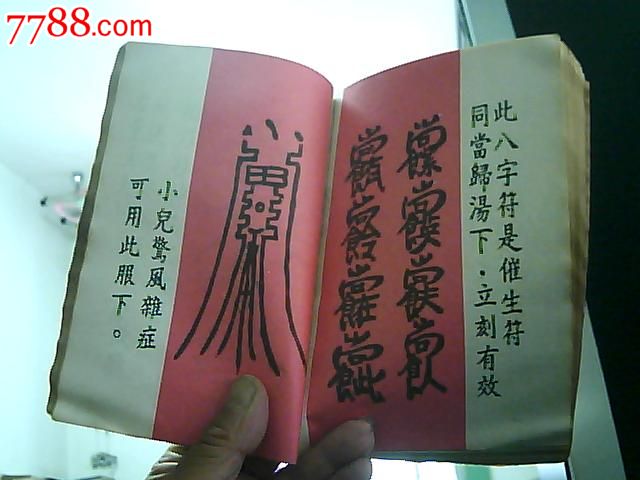 7788.com
此八字符是催生符
同當歸湯下．立刻有效
小兒驚風雜症
可用此服下。